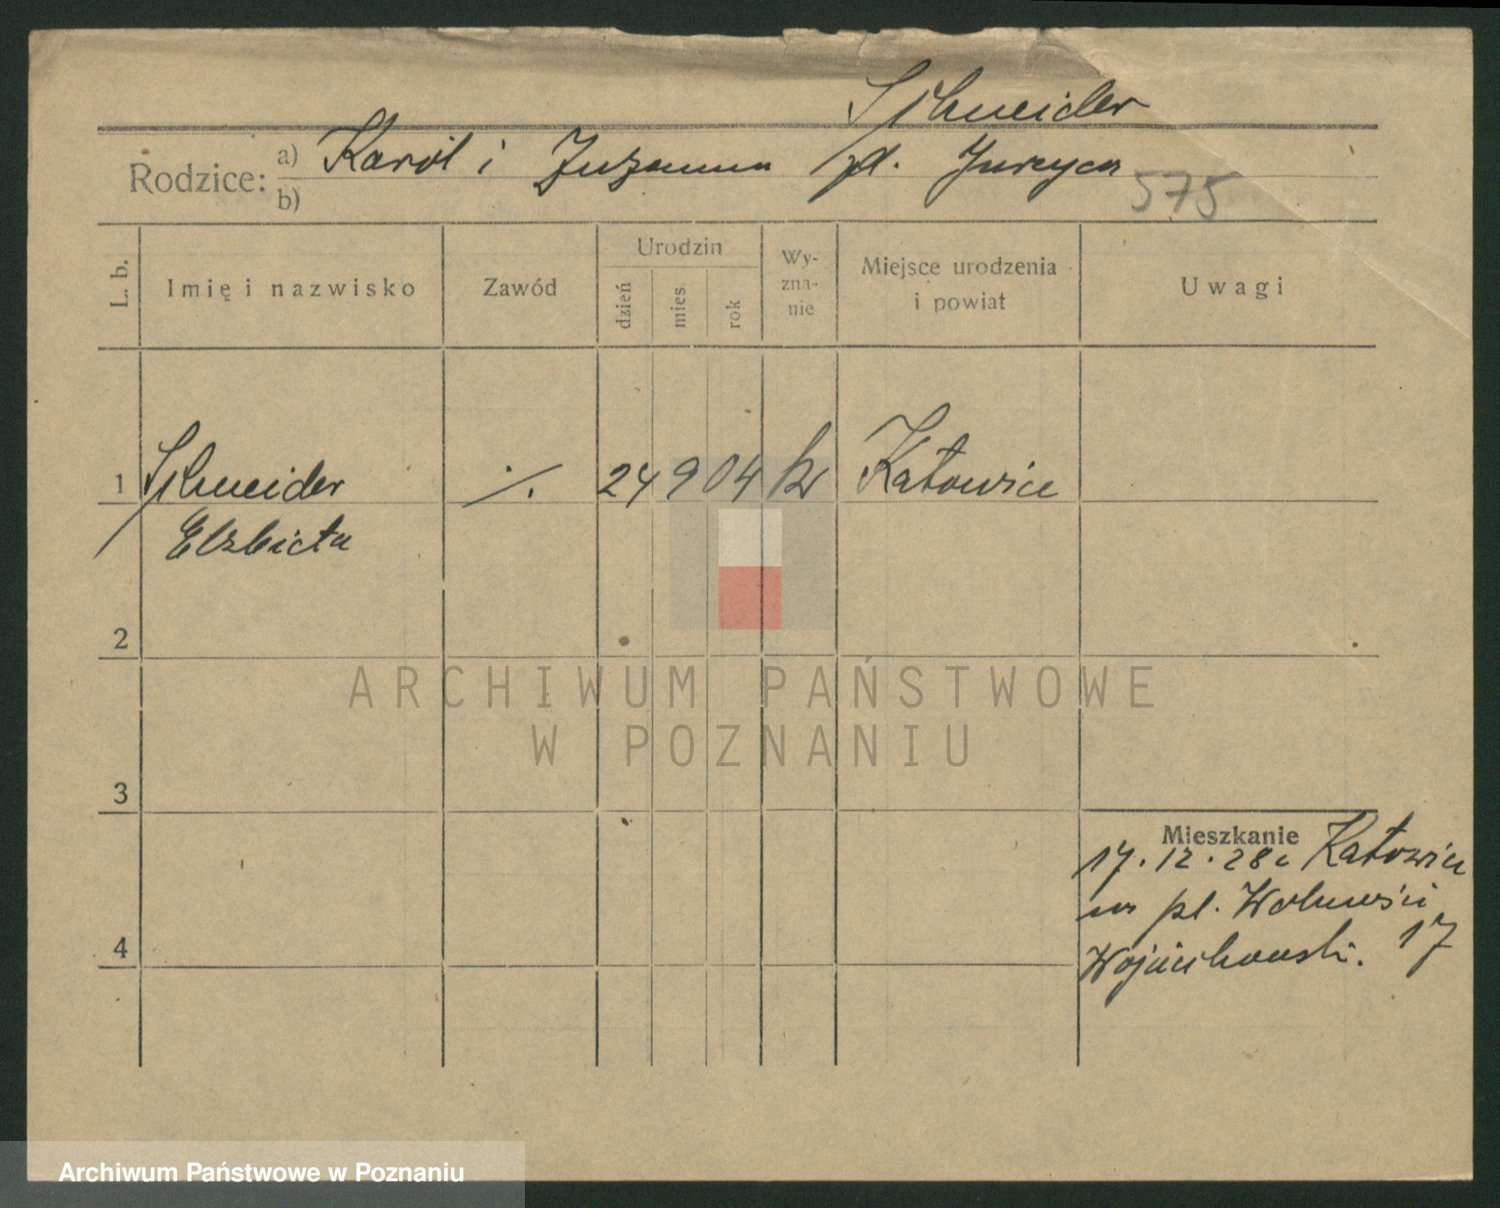 Schneider
Rodzice: a) Karol i Zuzanna zd. Juryca
b)
575
L. b.
Imię i nazwisko
Zawód
Urodzin
dzień
mies.
rok
Wy-
zna-
nie
Miejsce urodzenia
i powiat
Uwagi
1 Schneider ./. 24 9 04 kr Katowice
Elżbieta
2
3
4
Mieszkanie
17.12.28 z Katowice
na pl. Wolności
Wojciechowski. 17
ARCHIWUM PAŃSTWOWE
W POZNANIU
Archiwum Państwowe w Poznaniu